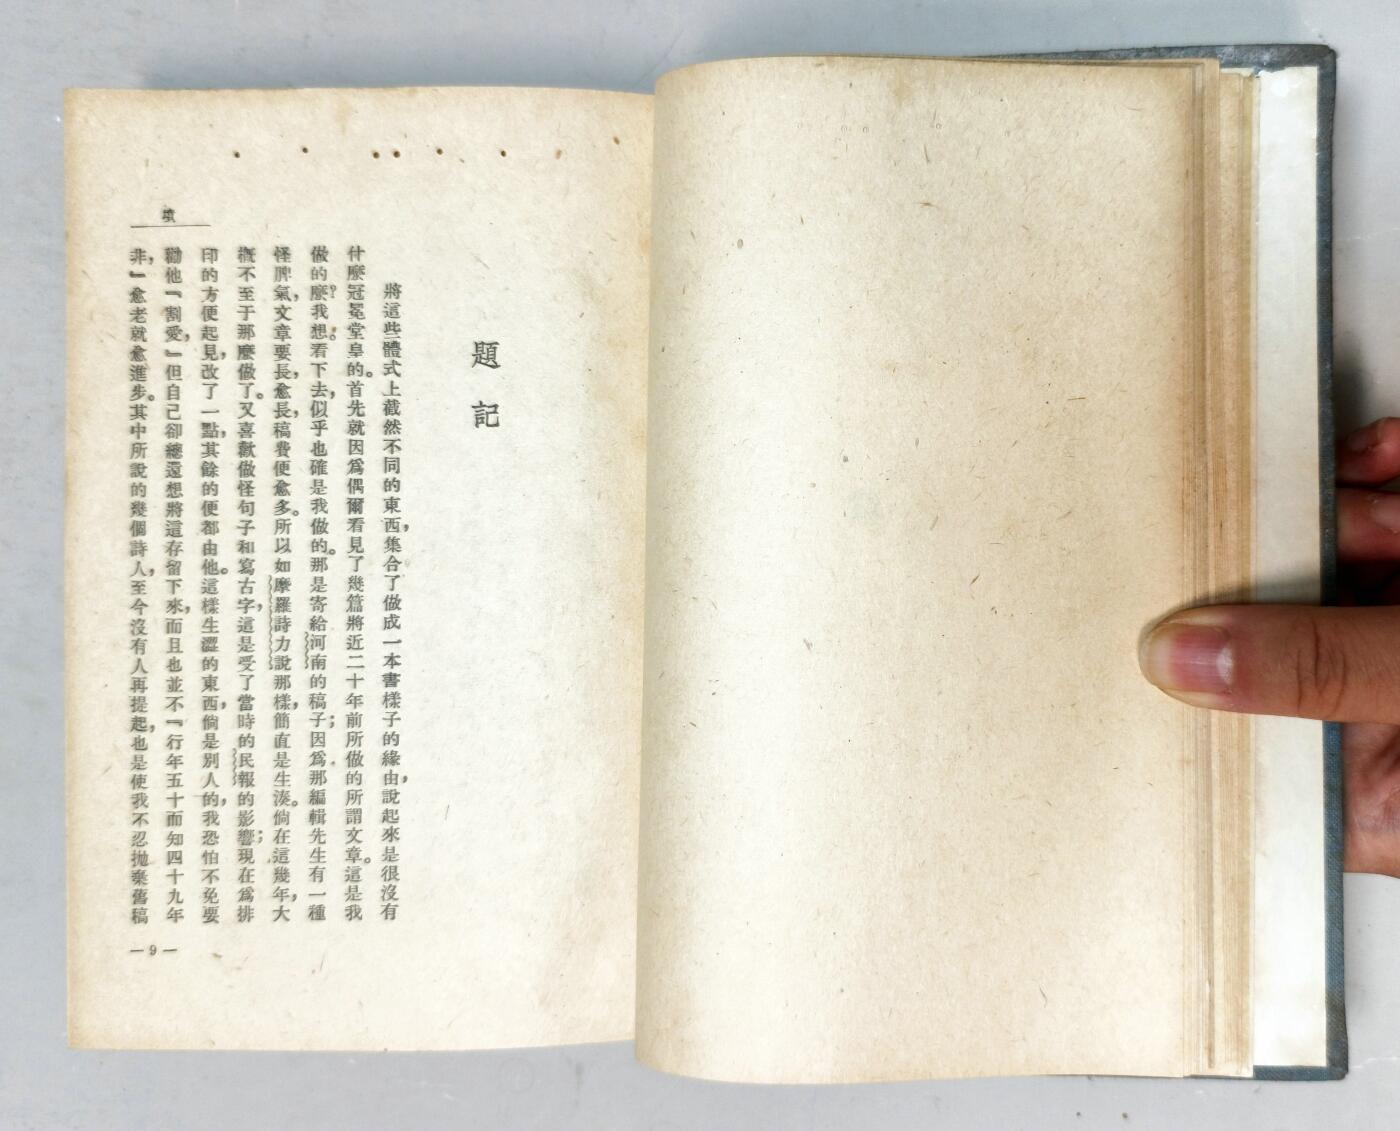 墳
題記
將這些體式上截然不同的東西，集合了做成一本書樣子的緣由，說起來是很沒有
什麼冠冕堂皇的。首先就因爲偶爾看見了幾篇將近二十年前所做的所謂文章。這是我
做的麼？我想。看下去，似乎也確是我做的。那是寄給河南的稿子；因爲那編輯先生有一種
怪脾氣，文章要長，愈長，稿費便愈多。所以如摩羅詩力說那樣，簡直是生湊。倘在這幾年，大
概不至于那麼做了。又喜歡做怪句子和寫古字，這是受了當時的民報的影響；現在爲排
印的方便起見，改了一點，其餘的便都由他。這樣生澀的東西，倘是別人的，我恐怕不免要
勸他『割愛，』但自己卻總還想將這存留下來，而且也並不『行年五十而知四十九年
非，』愈老就愈進步。其中所說的幾個詩人，至今沒有人再提起，也是使我不忍拋棄舊稿
— 9 —